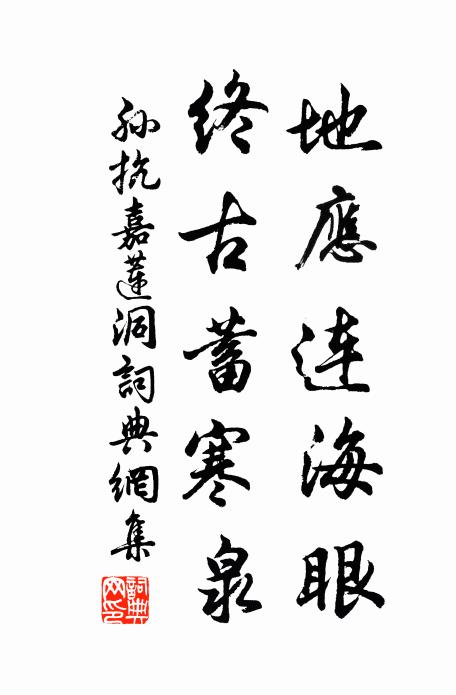 地應连海眼
終古蓄寒泉
孙抗嘉蓮洞詞典網集
詞典网印